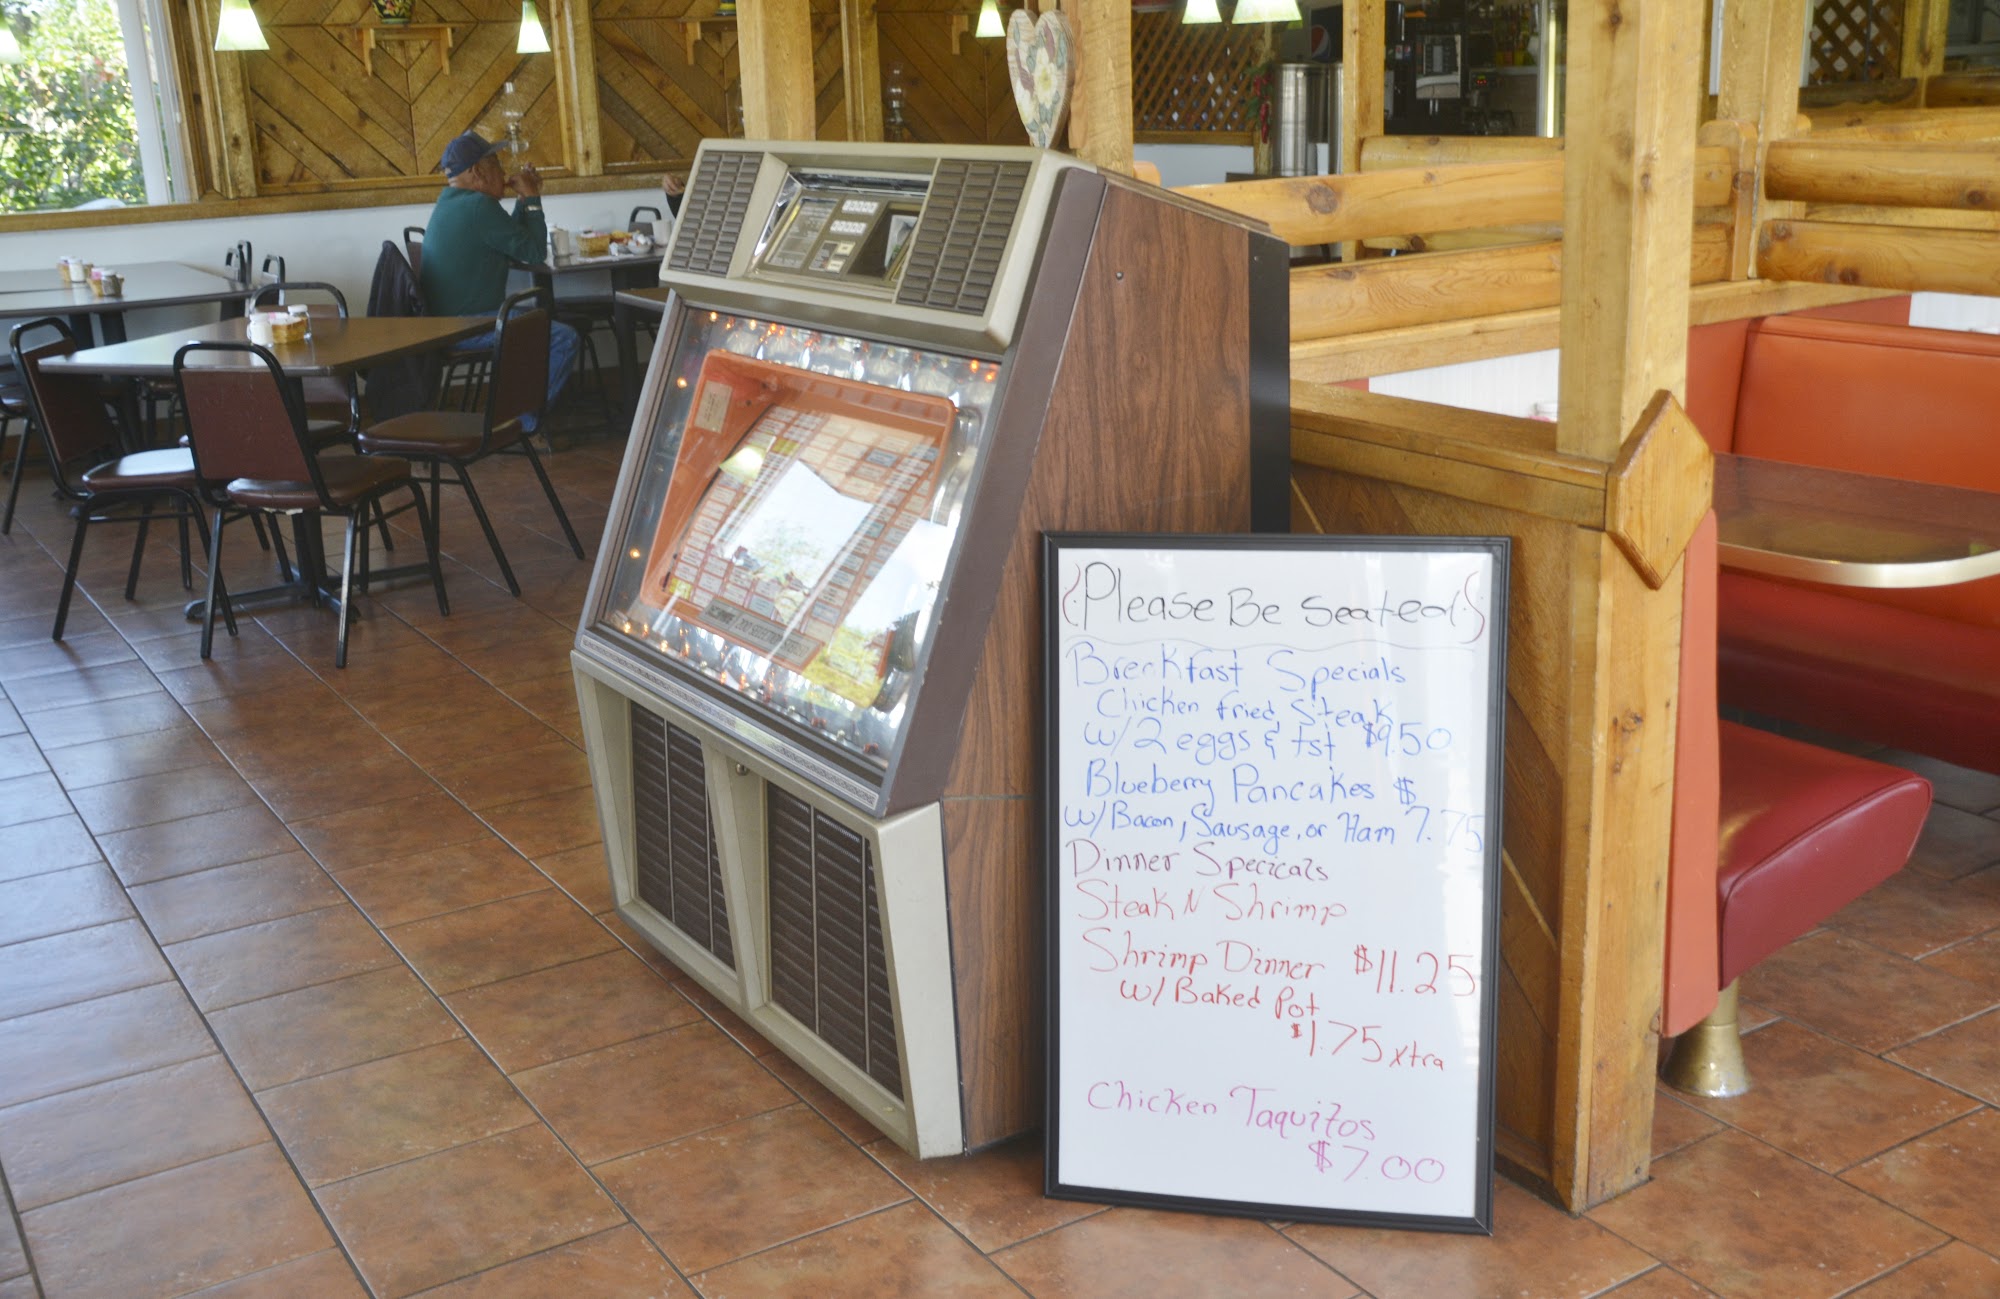 Please Be Seated
Breakfast Specials
Chicken fried Steak
w/2 eggs & tst $9.50
Blueberry Pancakes $
w/Bacon, Sausage, or Ham 7.75
Dinner Specicals
Steak N Shrimp
Shrimp Dinner $11.25
w/Baked Pot
$1.75 xtra
Chicken Taquitos
$7.00